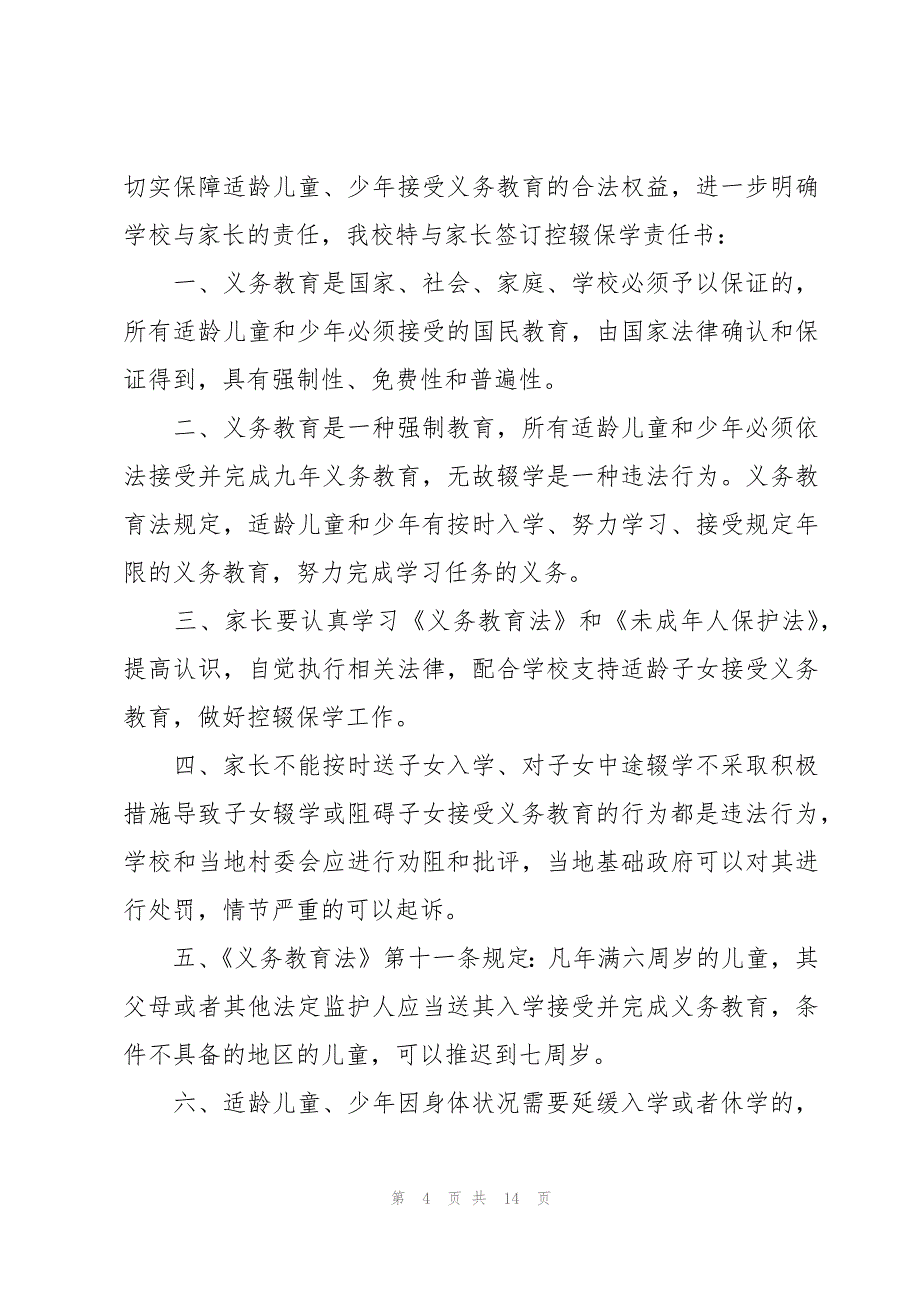 切实保障适龄儿童、少年接受义务教育的合法权益，进一步明确
学校与家长的责任，我校特与家长签订控辍保学责任书：
一、义务教育是国家、社会、家庭、学校必须予以保证的，
所有适龄儿童和少年必须接受的国民教育，由国家法律确认和保
证得到，具有强制性、免费性和普遍性。
二、义务教育是一种强制教育，所有适龄儿童和少年必须依
法接受并完成九年义务教育，无故辍学是一种违法行为。义务教
育法规定，适龄儿童和少年有按时入学、努力学习、接受规定年
限的义务教育，努力完成学习任务的义务。
三、家长要认真学习《义务教育法》和《未成年人保护法》，
提高认识，自觉执行相关法律，配合学校支持适龄子女接受义务
教育，做好控辍保学工作。
四、家长不能按时送子女入学、对子女中途辍学不采取积极
措施导致子女辍学或阻碍子女接受义务教育的行为都是违法行为，
学校和当地村委会应进行劝阻和批评，当地基础政府可以对其进
行处罚，情节严重的可以起诉。
五、《义务教育法》第十一条规定：凡年满六周岁的儿童，其
父母或者其他法定监护人应当送其入学接受并完成义务教育，条
件不具备的地区的儿童，可以推迟到七周岁。
六、适龄儿童、少年因身体状况需要延缓入学或者休学的，
第 4 页 共 14 页